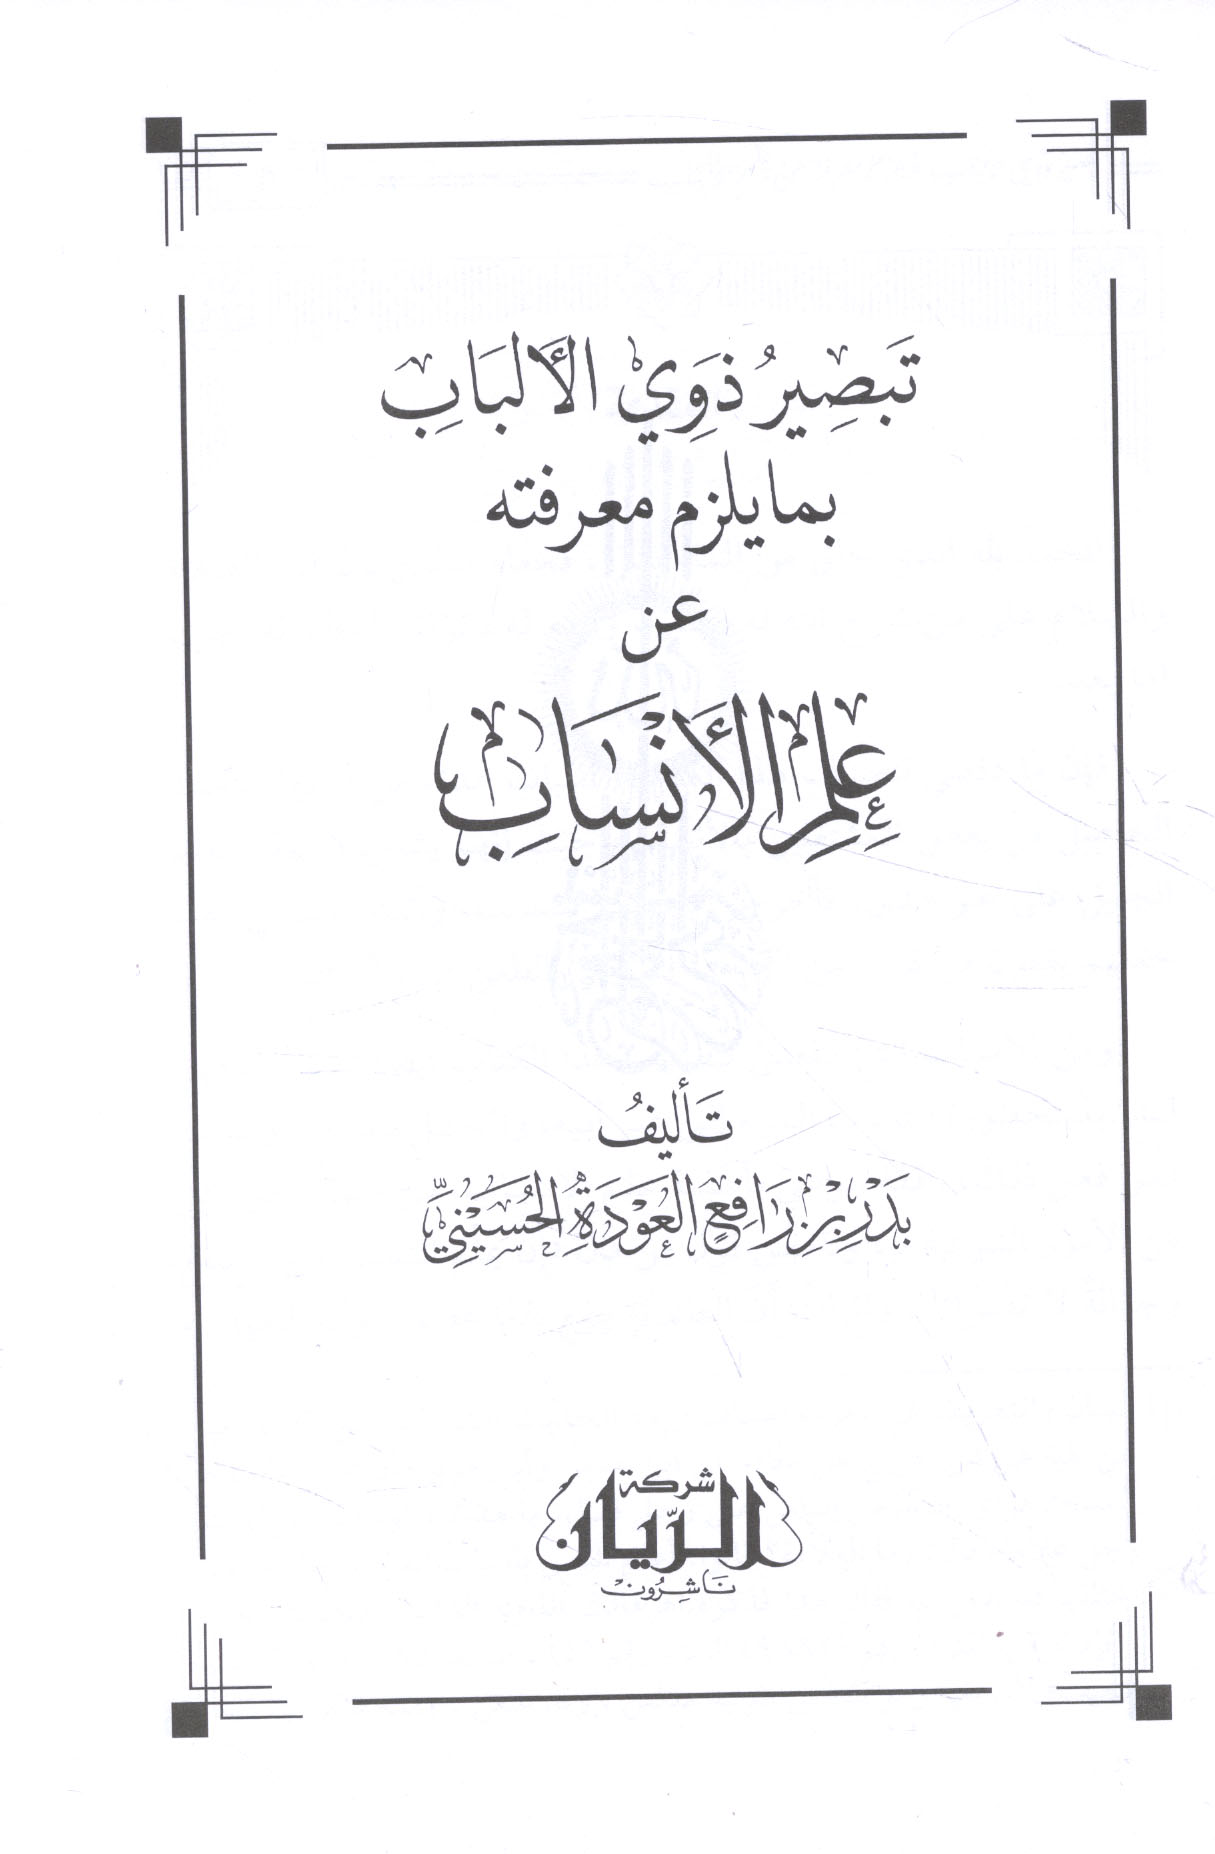 تَبصِيرُ ذَوِي الأَلبَابِ
بما يلزم معرفته
عن
عِلمِ الأَنسَابِ
تَأليفُ
بَدْرِ بْنِ رَافِعٍ العَوْدَةِ الحُسَيْنِيِّ
شركة
الريّان
نَاشِرُون